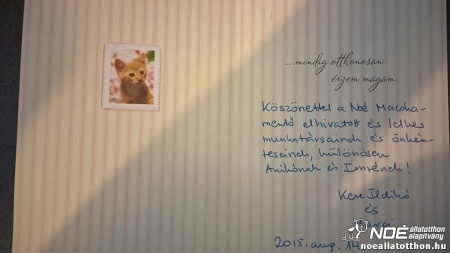 ...mindig otthonosan
érzem magam.
Köszönettel a Noé Macska-
mentő elhivatott és lelkes
munkatársainak és önkén-
teseinek, különösen
Anikónak és Imrének!
Kere Ildikó
és
2015. aug. 14
NOÉ állatotthon
alapítvány
noeallatotthon.hu